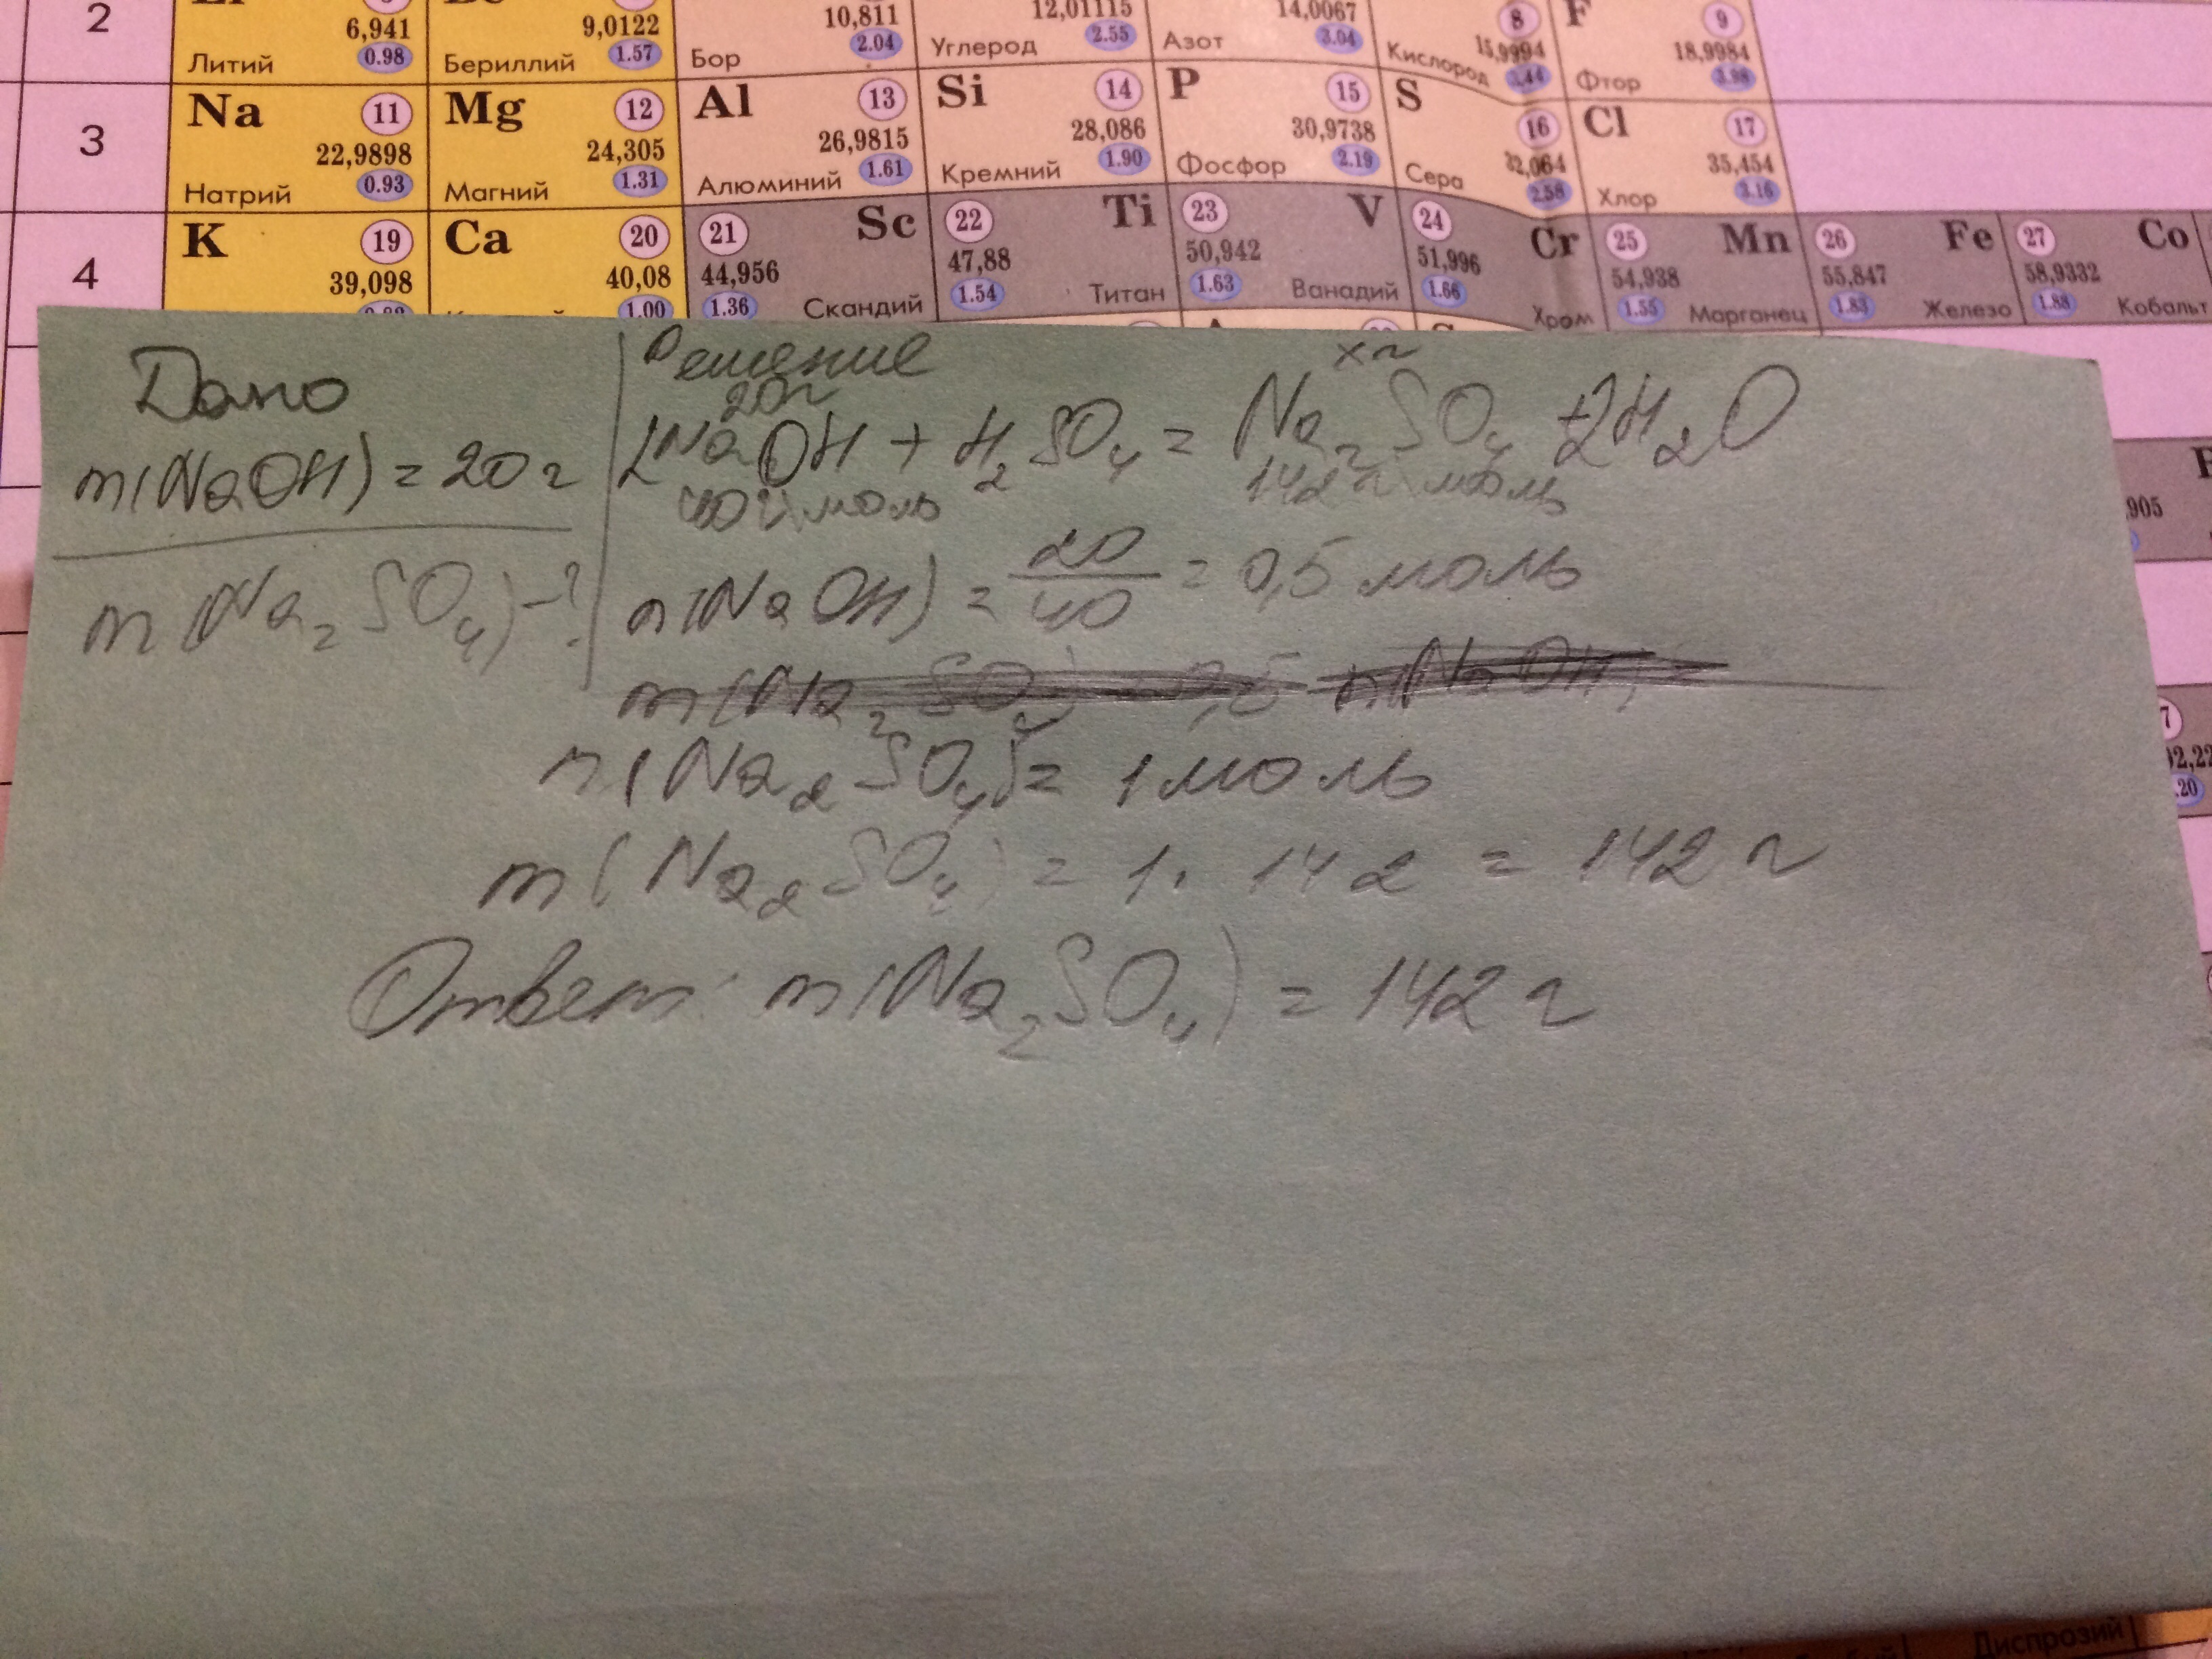 2
6,941
9,0122
10,811
12,01115
14,0067
8
F
9
Литий
0.98
Бериллий
1.57
Бор
2.04
Углерод
2.55
Азот
3.04
Кислород
15,9994
3.44
Фтор
18,9984
3.98
3
Na
11
22,9898
Натрий
0.93
Mg
12
24,305
Магний
1.31
Al
13
26,9815
Алюминий
1.61
Si
14
28,086
Кремний
1.90
P
15
30,9738
Фосфор
2.19
S
16
32,064
Сера
2.58
Cl
17
35,454
Хлор
3.16
4
K
19
39,098
Ca
20
40,08
1.00
21
Sc
44,956
1.36
Скандий
22
Ti
47,88
1.54
Титан
23
V
50,942
1.63
Ванадий
24
Cr
51,996
1.66
Хром
25
Mn
54,938
1.55
Марганец
26
Fe
55,847
1.83
Железо
27
Co
58,9332
1.88
Кобальт
Дано
m(NaOH) = 20г
m(Na2SO4) - ?
Решение
20г
хг
2NaOH + H2SO4 = Na2SO4 + 2H2O
40г\моль
142г\моль
n(NaOH) = 20/40 = 0,5 моль
n(Na2SO4) = 1 моль
m(Na2SO4) = 1 · 142 = 142 г
Ответ: m(Na2SO4) = 142 г
905
7
20
Диспрозий